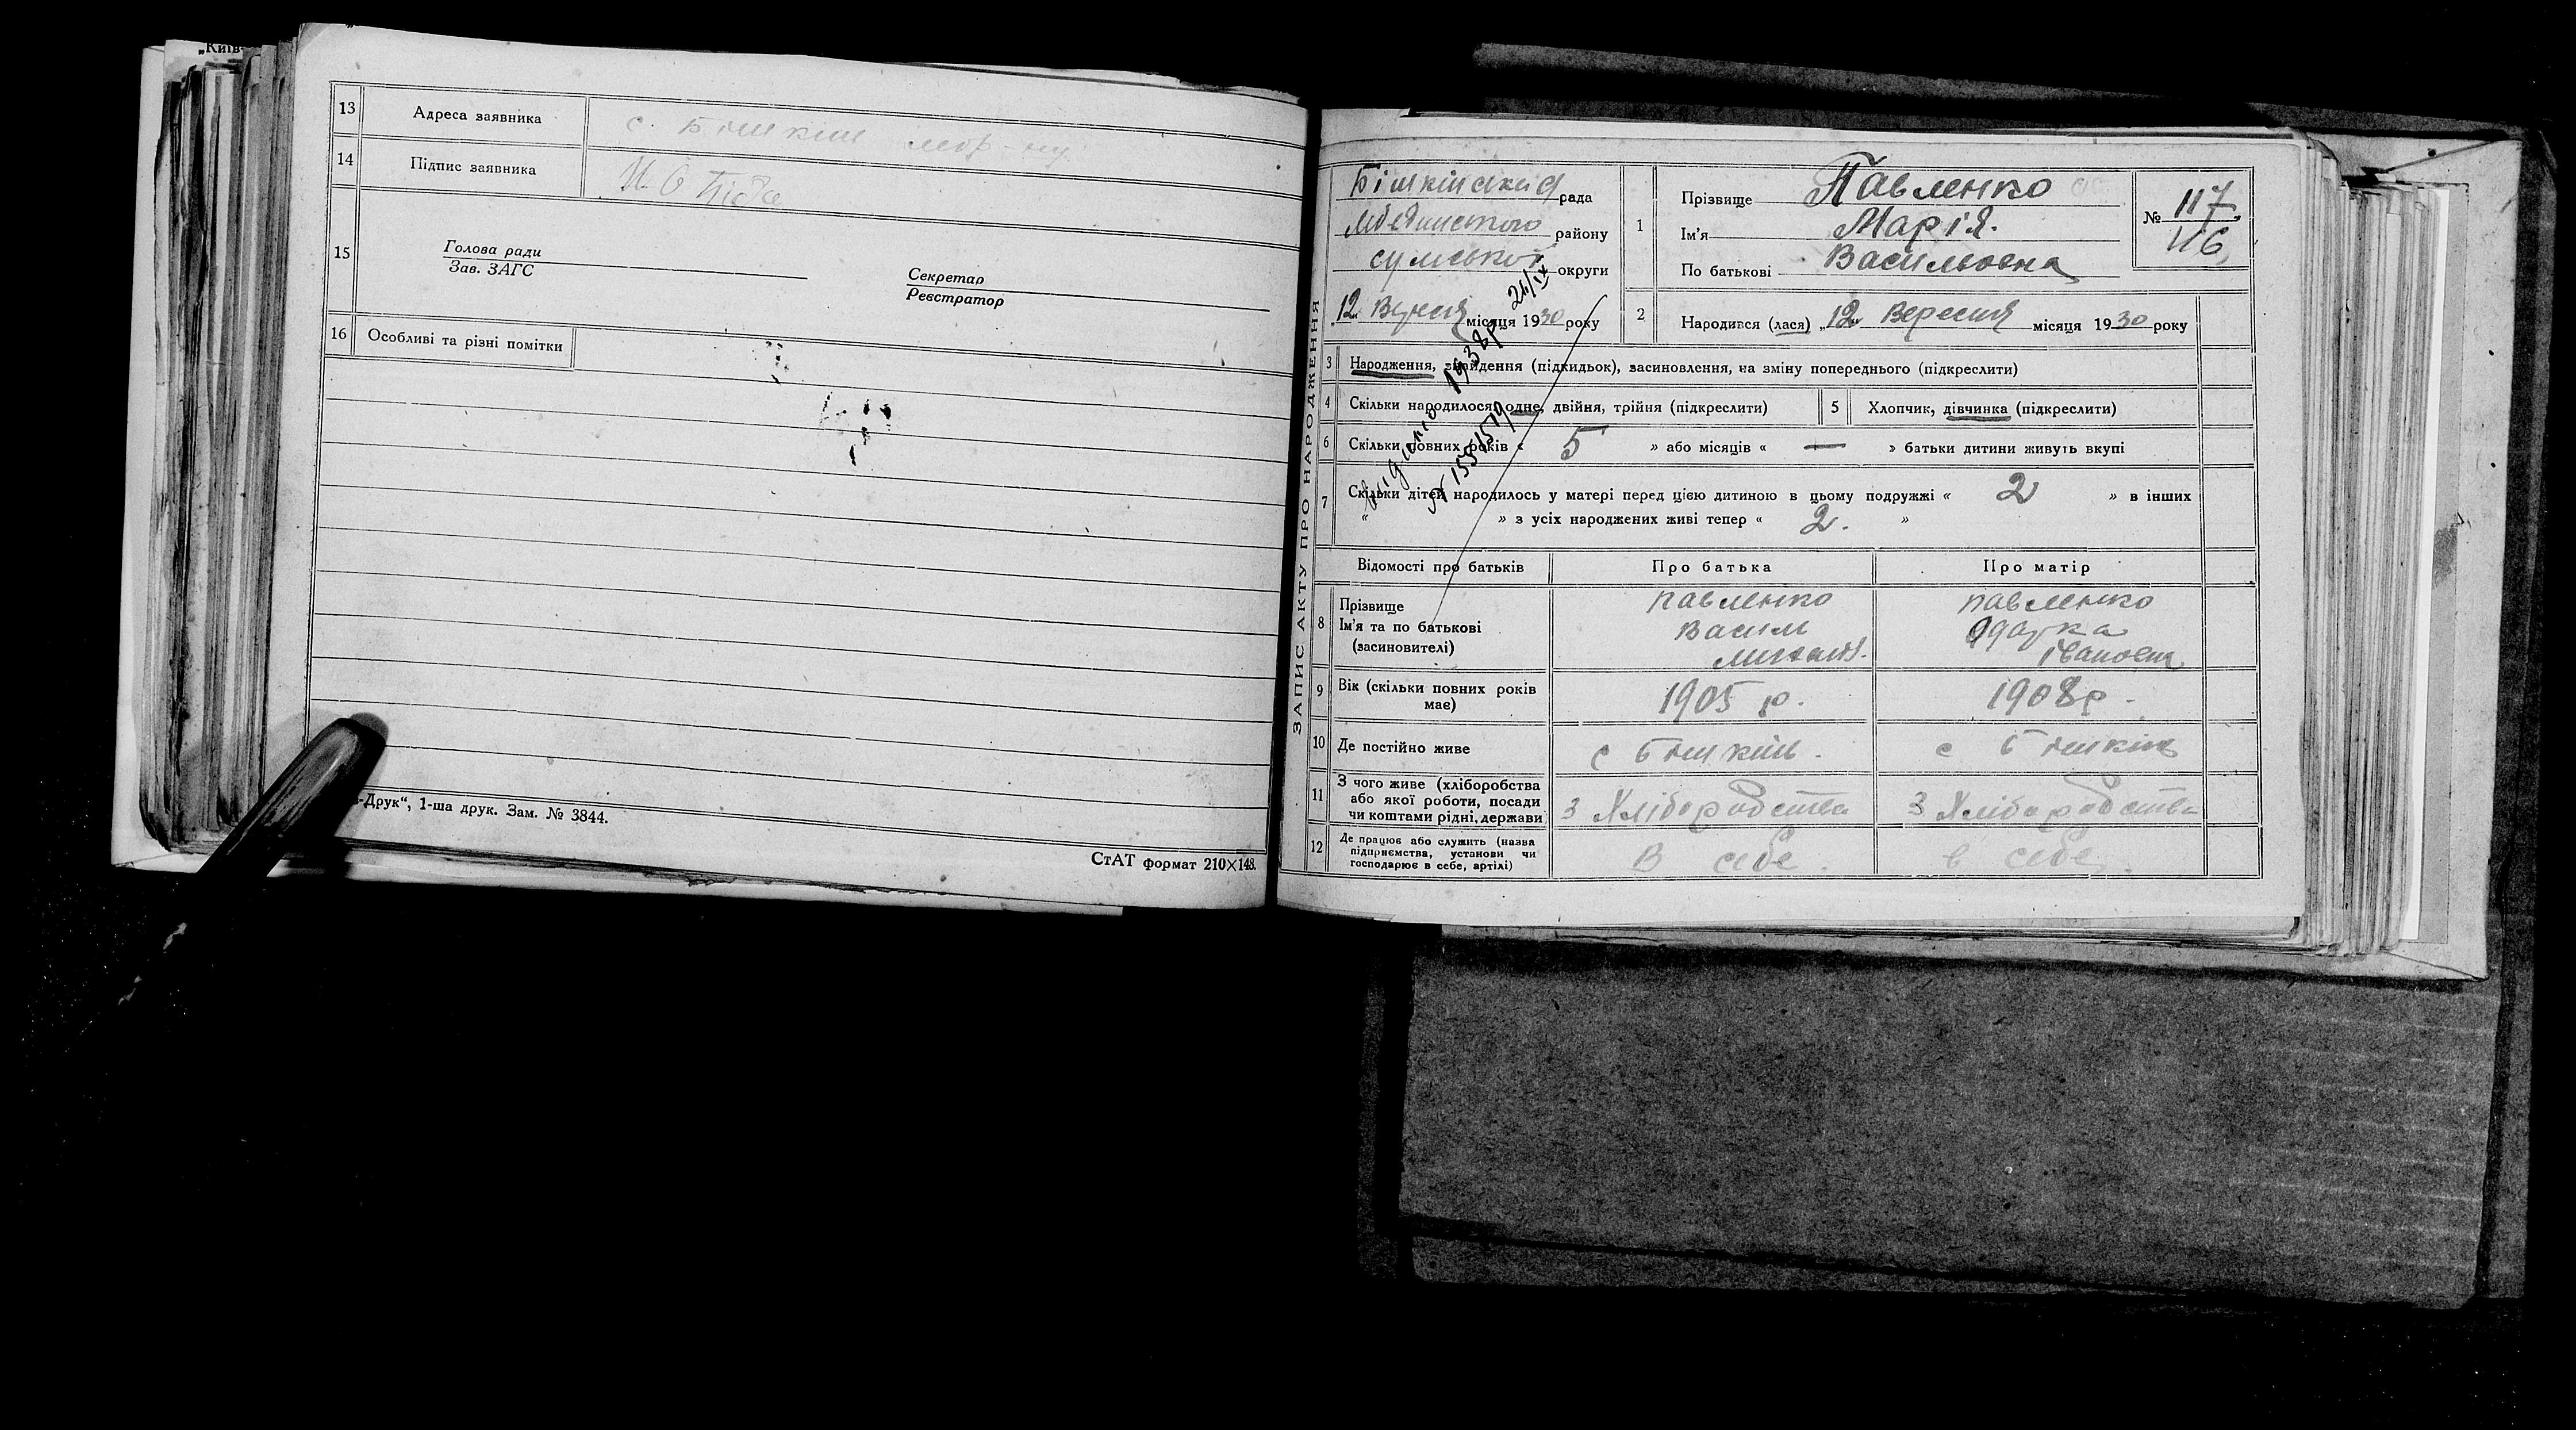 „Київ-
13 Адреса заявника с. Бішкінь
14 Підпис заявника
15 Голова ради
Зав. ЗАГС
Секретар
Реєстратор
16 Особливі та різні помітки
-Друк“, 1-ша друк. Зам. № 3844.
СтАТ формат 210×148.
ЗАПИС АКТУ ПРО НАРОДЖЕННЯ
Бішкінська рада
району
сумської округи
12 Вересня місяця 1930 року
видано 1938р 24/IX
1 Прізвище Павленко
Ім'я Марія.
По батькові Васильовна
№ 117
116
2 Народився (лася) „12“ Вересня місяця 1930 року
3 Народження, знайдення (підкидьок), засиновлення, на зміну попереднього (підкреслити)
4 Скільки народилося: одне, двійня, трійня (підкреслити) 5 Хлопчик, дівчинка (підкреслити)
6 Скільки повних років « 5 » або місяців « — » батьки дитини живуть вкупі
7 Скільки дітей народилось у матері перед цією дитиною в цьому подружжі « 2 » в інших
« » з усіх народжених живі тепер « 2. »
Відомості про батьків Про батька Про матір
8 Прізвище
Ім'я та по батькові
(засиновителі)
Павленко
Васил
Павленко
Одарка
Івановна
9 Вік (скільки повних років
має)
1905 р. 1908р -
10 Де постійно живе с Бішкінь. с Бішкінь
11 З чого живе (хліборобства
або якої роботи, посади
чи коштами рідні, держави
З Хліборобства З Хліборобства
12 Де працює або служить (назва
підприємства, установи чи
господарює в себе, артілі)
В себе. в себе.